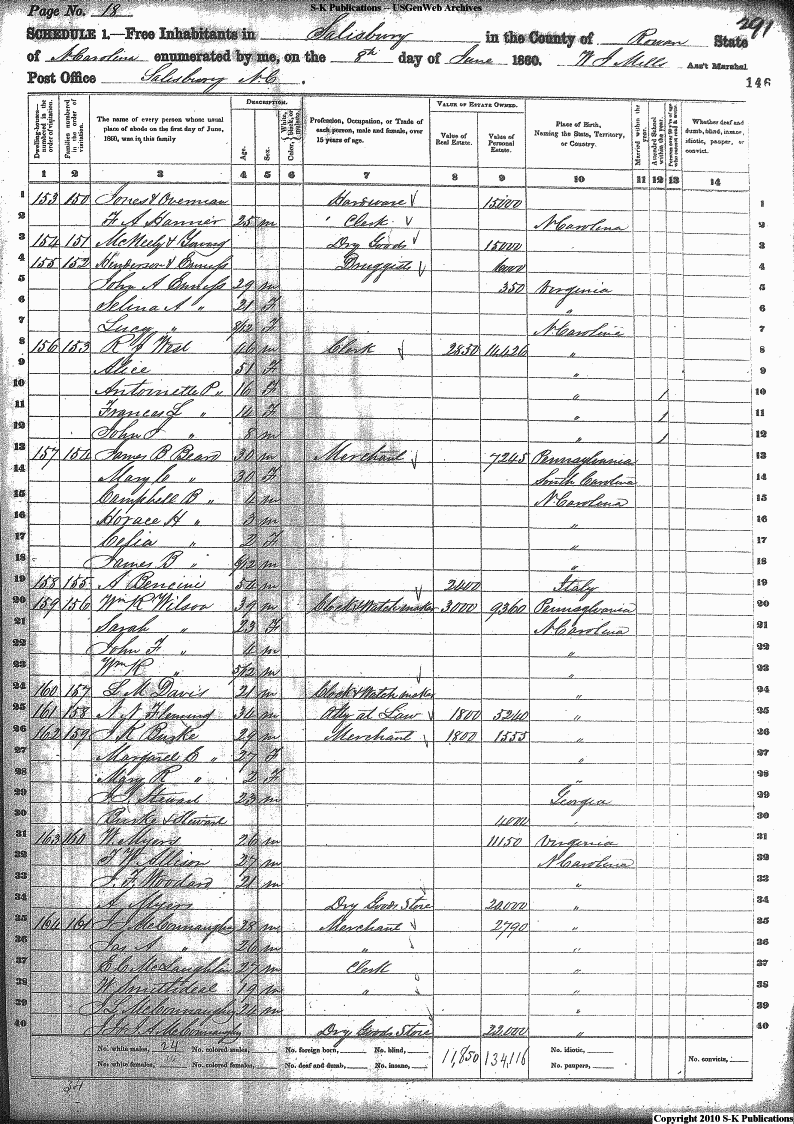 S-K Publications -- USGenWeb Archives
Page No. 18
291
SCHEDULE 1.—Free Inhabitants in Salisbury in the County of Rowan State
of N. Carolina enumerated by me, on the 8th day of June 1860. W J Mills Ass't Marshal
Post Office Salisbury N.C.
146
Dwelling-house—numbered in the order of visitation.
Families numbered in the order of visitation.
The name of every person whose usual place of abode on the first day of June, 1860, was in this family
DESCRIPTION.
Age.
Sex.
Color, White, black, or mulatto.
Profession, Occupation, or Trade of each person, male and female, over 15 years of age.
VALUE OF ESTATE OWNED.
Value of Real Estate.
Value of Personal Estate.
Place of Birth, Naming the State, Territory, or Country.
Married within the year.
Attended School within the year.
Whether deaf and dumb, blind, insane, idiotic, pauper, or convict.
1 2 3 4 5 6 7 8 9 10 11 12 13 14
1 153 150 Jones & Overman Hardware 15000 1
2 F A Hanner 25 m Clerk N Carolina 2
3 154 151 McNeely & Young Dry Goods 15000 3
4 155 152 Henderson & Enniss Druggists 6000 4
5 John A Enniss 29 m 350 Virginia 5
6 Selina A " 21 F " 6
7 Lucy " 8/12 F N Carolina 7
8 156 153 R A West 46 m Clerk 2850 14426 " 8
9 Alice 51 F " 9
10 Antoinette P " 16 F " 1 10
11 Frances L " 14 F " 1 11
12 John " 8 m " 1 12
13 157 154 James B Beard 30 m Merchant 7245 Pennsylvania 13
14 Mary C " 30 F South Carolina 14
15 Campbell B " 4 m N Carolina 15
16 Horace H " 3 m " 16
17 Celia " 2 F " 17
18 James B " m " 18
19 158 155 A Bencini 54 m 2400 Italy 19
20 159 156 Wm R Wilson 39 m Clock & Watch maker 3000 9360 Pennsylvania 20
21 Sarah " 23 F N Carolina 21
22 John F " 4 m " 22
23 Wm R " 5/12 m " 23
24 160 157 L M Davis 21 m Clock & Watch maker " 24
25 161 158 N N Fleming 34 m Atty at Law 1800 5240 " 25
26 162 159 J K Burke 29 m Merchant 1800 1555 " 26
27 Margaret E " 27 F " 27
28 Mary R " 2 F " 28
29 Steward 23 m Georgia 29
30 Burke & Steward 4000 30
31 163 160 W Myers 26 m 11150 Virginia 31
32 F W Allison 27 m N Carolina 32
33 J F Woodard 21 m " 33
34 A Myers Dry Goods Store 20.000 " 34
35 164 161 J McConnaughy 28 m Merchant 2790 " 35
36 Jas A " 26 m " " 36
37 E C McLaughlin 27 m Clerk " 37
38 W Smithdeal 19 m " " 38
39 J L McConnaughy 24 m " 39
40 J & J A McConnaughy Dry Goods Store 22.000 " 40
No. white males, 24 No. colored males, No. foreign born, No. blind, 11,850 134,116 No. idiotic, No. convicts,
No. white females, No. colored females, No. deaf and dumb, No. insane, No. paupers,
Copyright 2010 S-K Publications